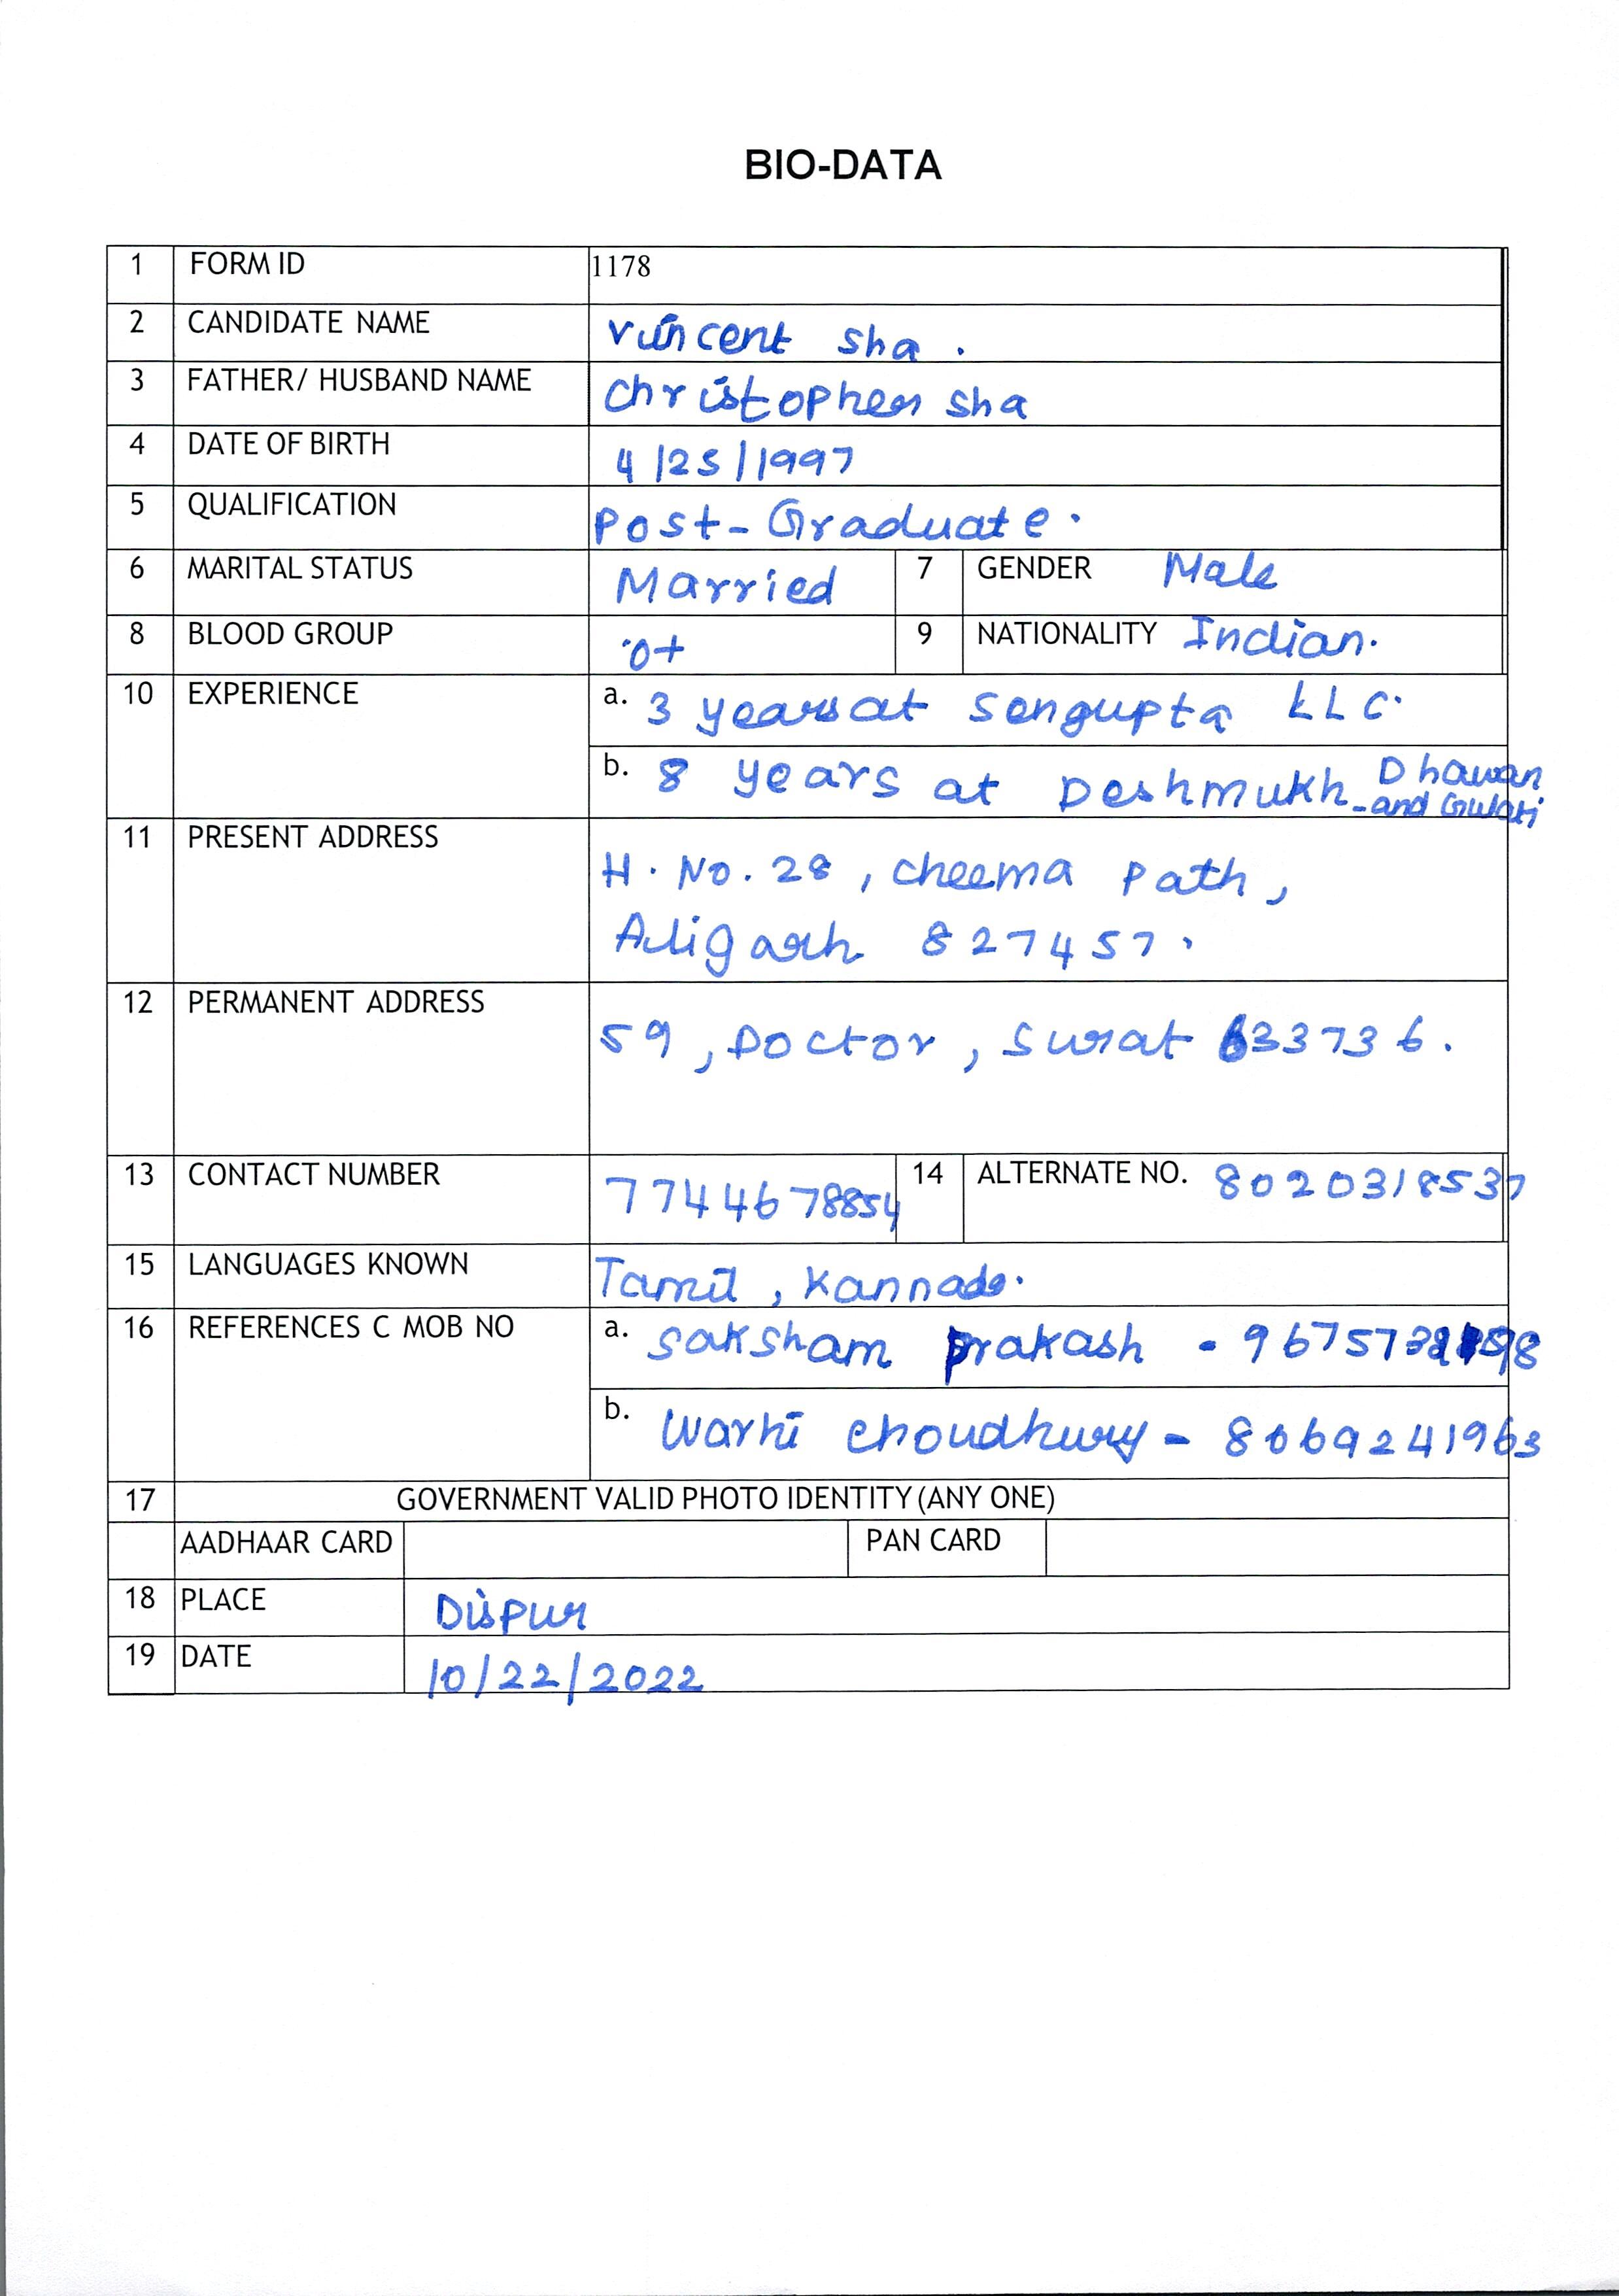 BIO-DATA
1 FORM ID 1178
2 CANDIDATE NAME Vincent Sha .
3 FATHER/ HUSBAND NAME Christopher Sha
4 DATE OF BIRTH 4/25/1997
5 QUALIFICATION Post-Graduate.
6 MARITAL STATUS Married 7 GENDER Male
8 BLOOD GROUP O+ 9 NATIONALITY Indian.
10 EXPERIENCE a. 3 years at Sengupta LLC.
b. 8 years at Deshmukh-Dhawan
and Gulati
11 PRESENT ADDRESS
H. No. 28, Cheema Path,
Aligarh 827457.
12 PERMANENT ADDRESS
59, Doctor, Surat 633736.
13 CONTACT NUMBER 7744678854 14 ALTERNATE NO. 8020318537
15 LANGUAGES KNOWN Tamil, Kannada.
16 REFERENCES C MOB NO a. Saksham Prakash -
b. Warhi Choudhury - 8069241963
17 GOVERNMENT VALID PHOTO IDENTITY (ANY ONE)
AADHAAR CARD PAN CARD
18 PLACE Dispur
19 DATE 10/22/2022